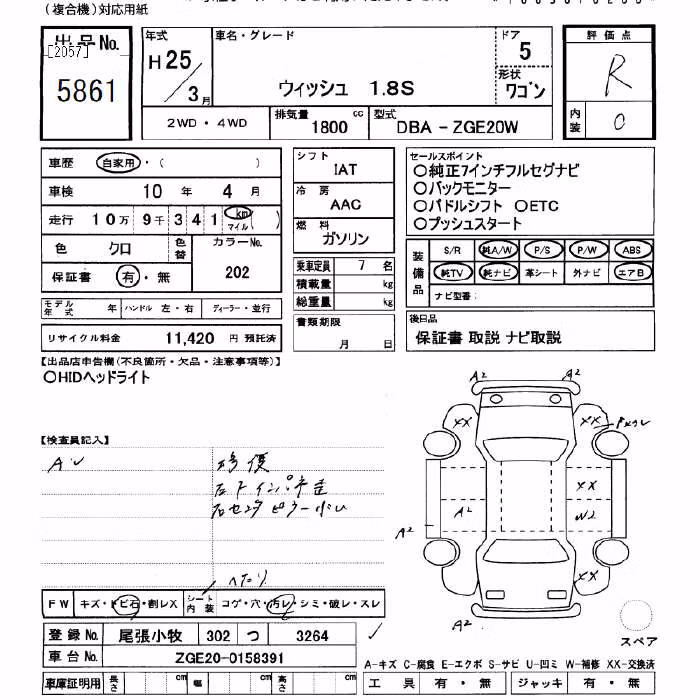 (複合機)対応用紙
出品No.
[2057]
5861
年式
H25/3月
車名・グレード
ウィッシュ 1.8S
ドア
5
形状
ワゴン
評価点
R
内装
C
2WD・4WD
排気量
1800 cc
型式
DBA-ZGE20W
車歴 自家用・( )
車検 10年 4月
走行 10万 9千 3 4 1 km マイル( )
色 クロ
色替
カラーNo.
202
保証書 有・無
シフト
IAT
冷房
AAC
燃料
ガソリン
乗車定員 7 名
積載量 kg
総重量 kg
セールスポイント
〇純正7インチフルセグナビ
〇バックモニター
〇パドルシフト 〇ETC
〇プッシュスタート
装備品
S/R 純A/W P/S P/W ABS
純TV 純ナビ 革シート 外ナビ エアB
ナビ型番:
モデル年式 年 ハンドル 左・右 ディーラー・並行
リサイクル料金 11,420 円 預託済
書類期限
月 日
後日品
保証書 取説 ナビ取説
【出品店申告欄(不良箇所・欠品・注意事項等)】
〇HIDヘッドライト
【検査員記入】
修復
A2 A2
XX XX
XX
A2 W2
A2
XX
A2
FW キズ・トビ石・割レX
シート内装 コゲ・穴・汚レ・シミ・破レ・スレ
登録No. 尾張小牧 302 つ 3264
車台No. ZGE20-0158391
車庫証明用 長さ cm 幅 cm 高さ cm
スペア
A-キズ C-腐食 E-エクボ S-サビ U-凹ミ W-補修 XX-交換済
工具 有・無 ジャッキ 有・無